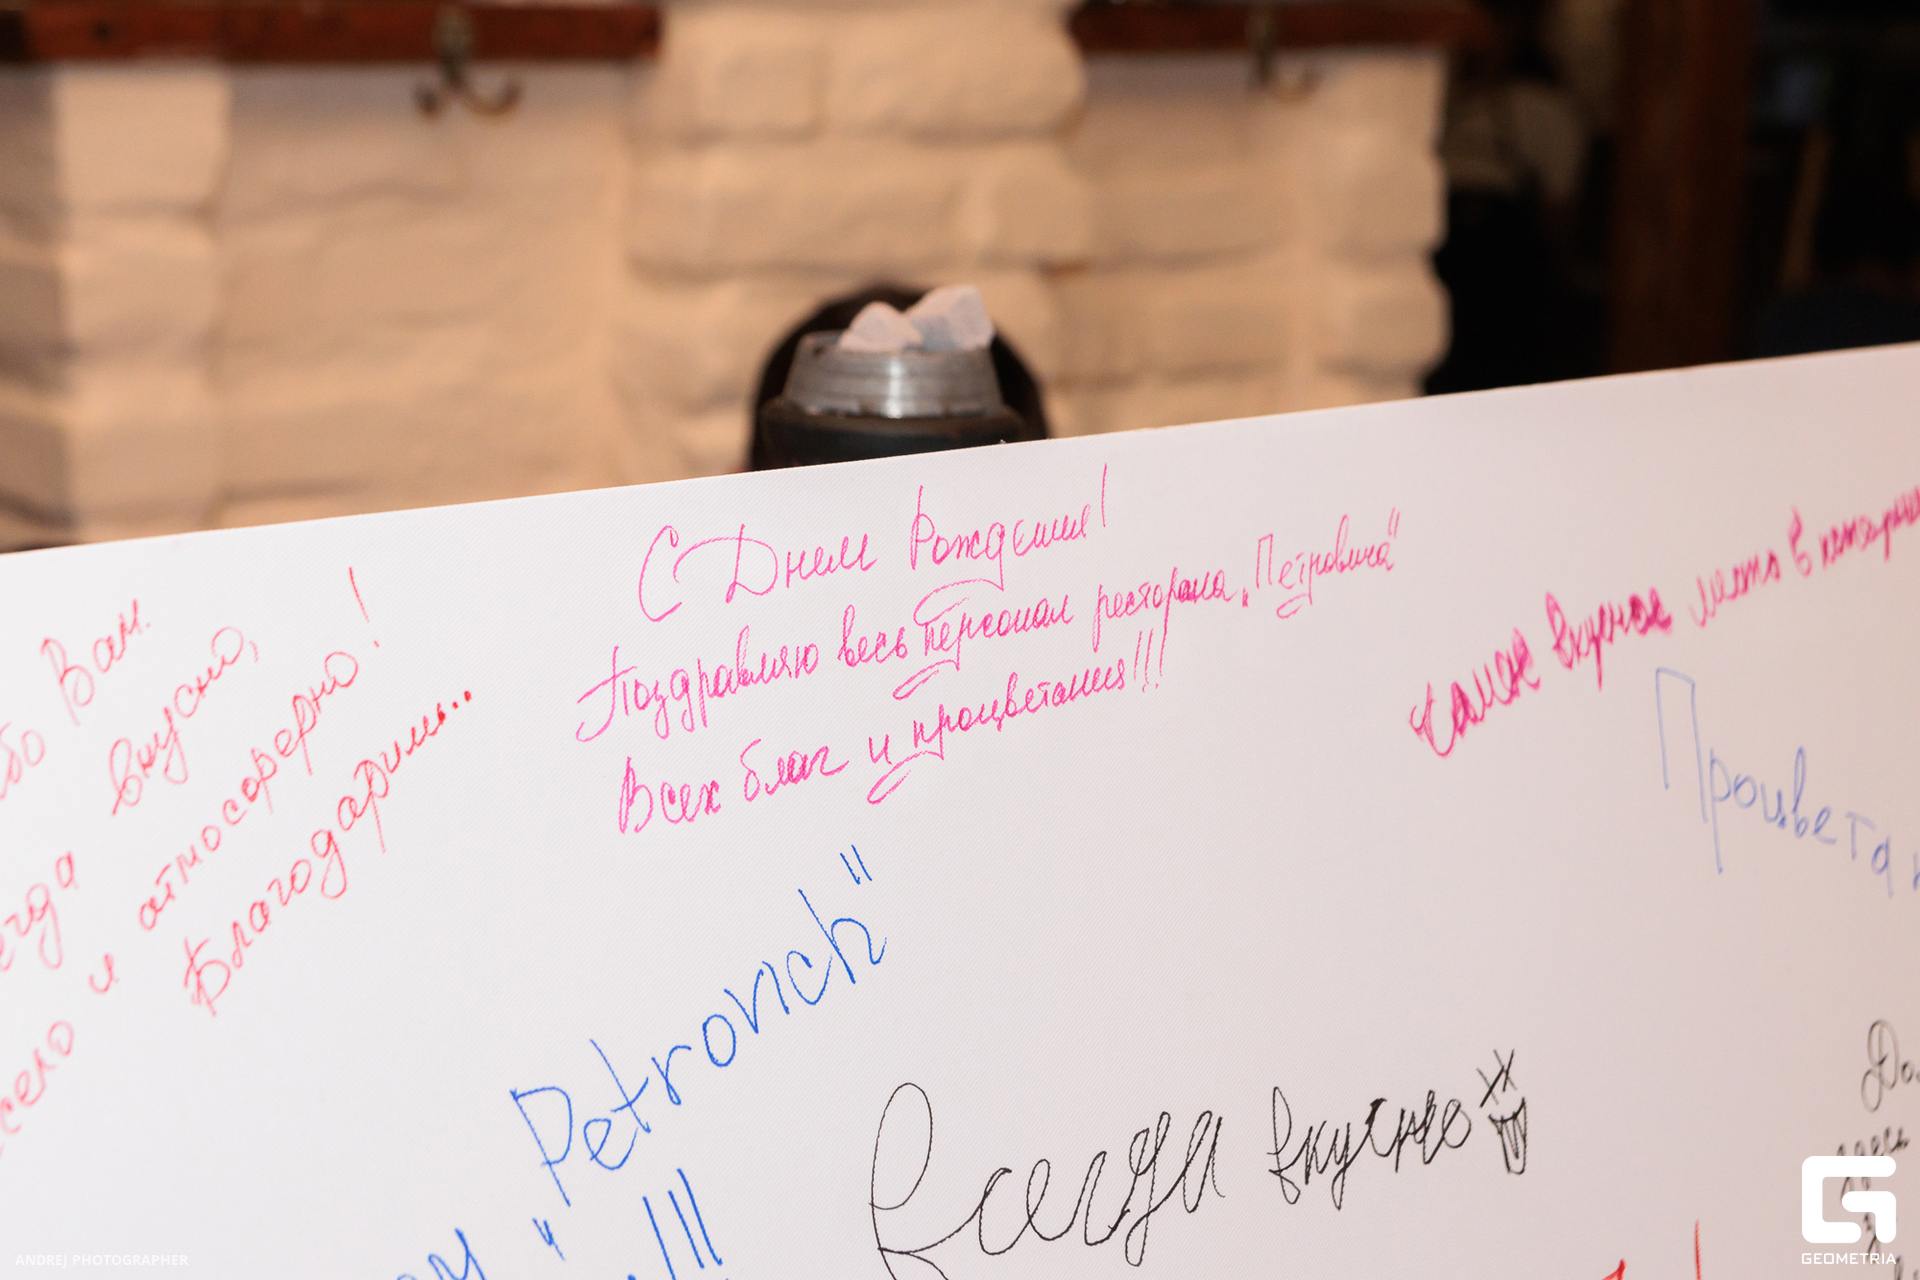 С Днем Рождения!
Поздравляю весь персонал ресторана „Петровича“
Всех благ и процветания!!!
Вам.
вкусно,
и атмосферно!
Благодарим...
Самое вкусное место в
Процвета
"Petrovich"
!!!
Всегда вкусно
ANDREJ PHOTOGRAPHER
GEOMETRIA